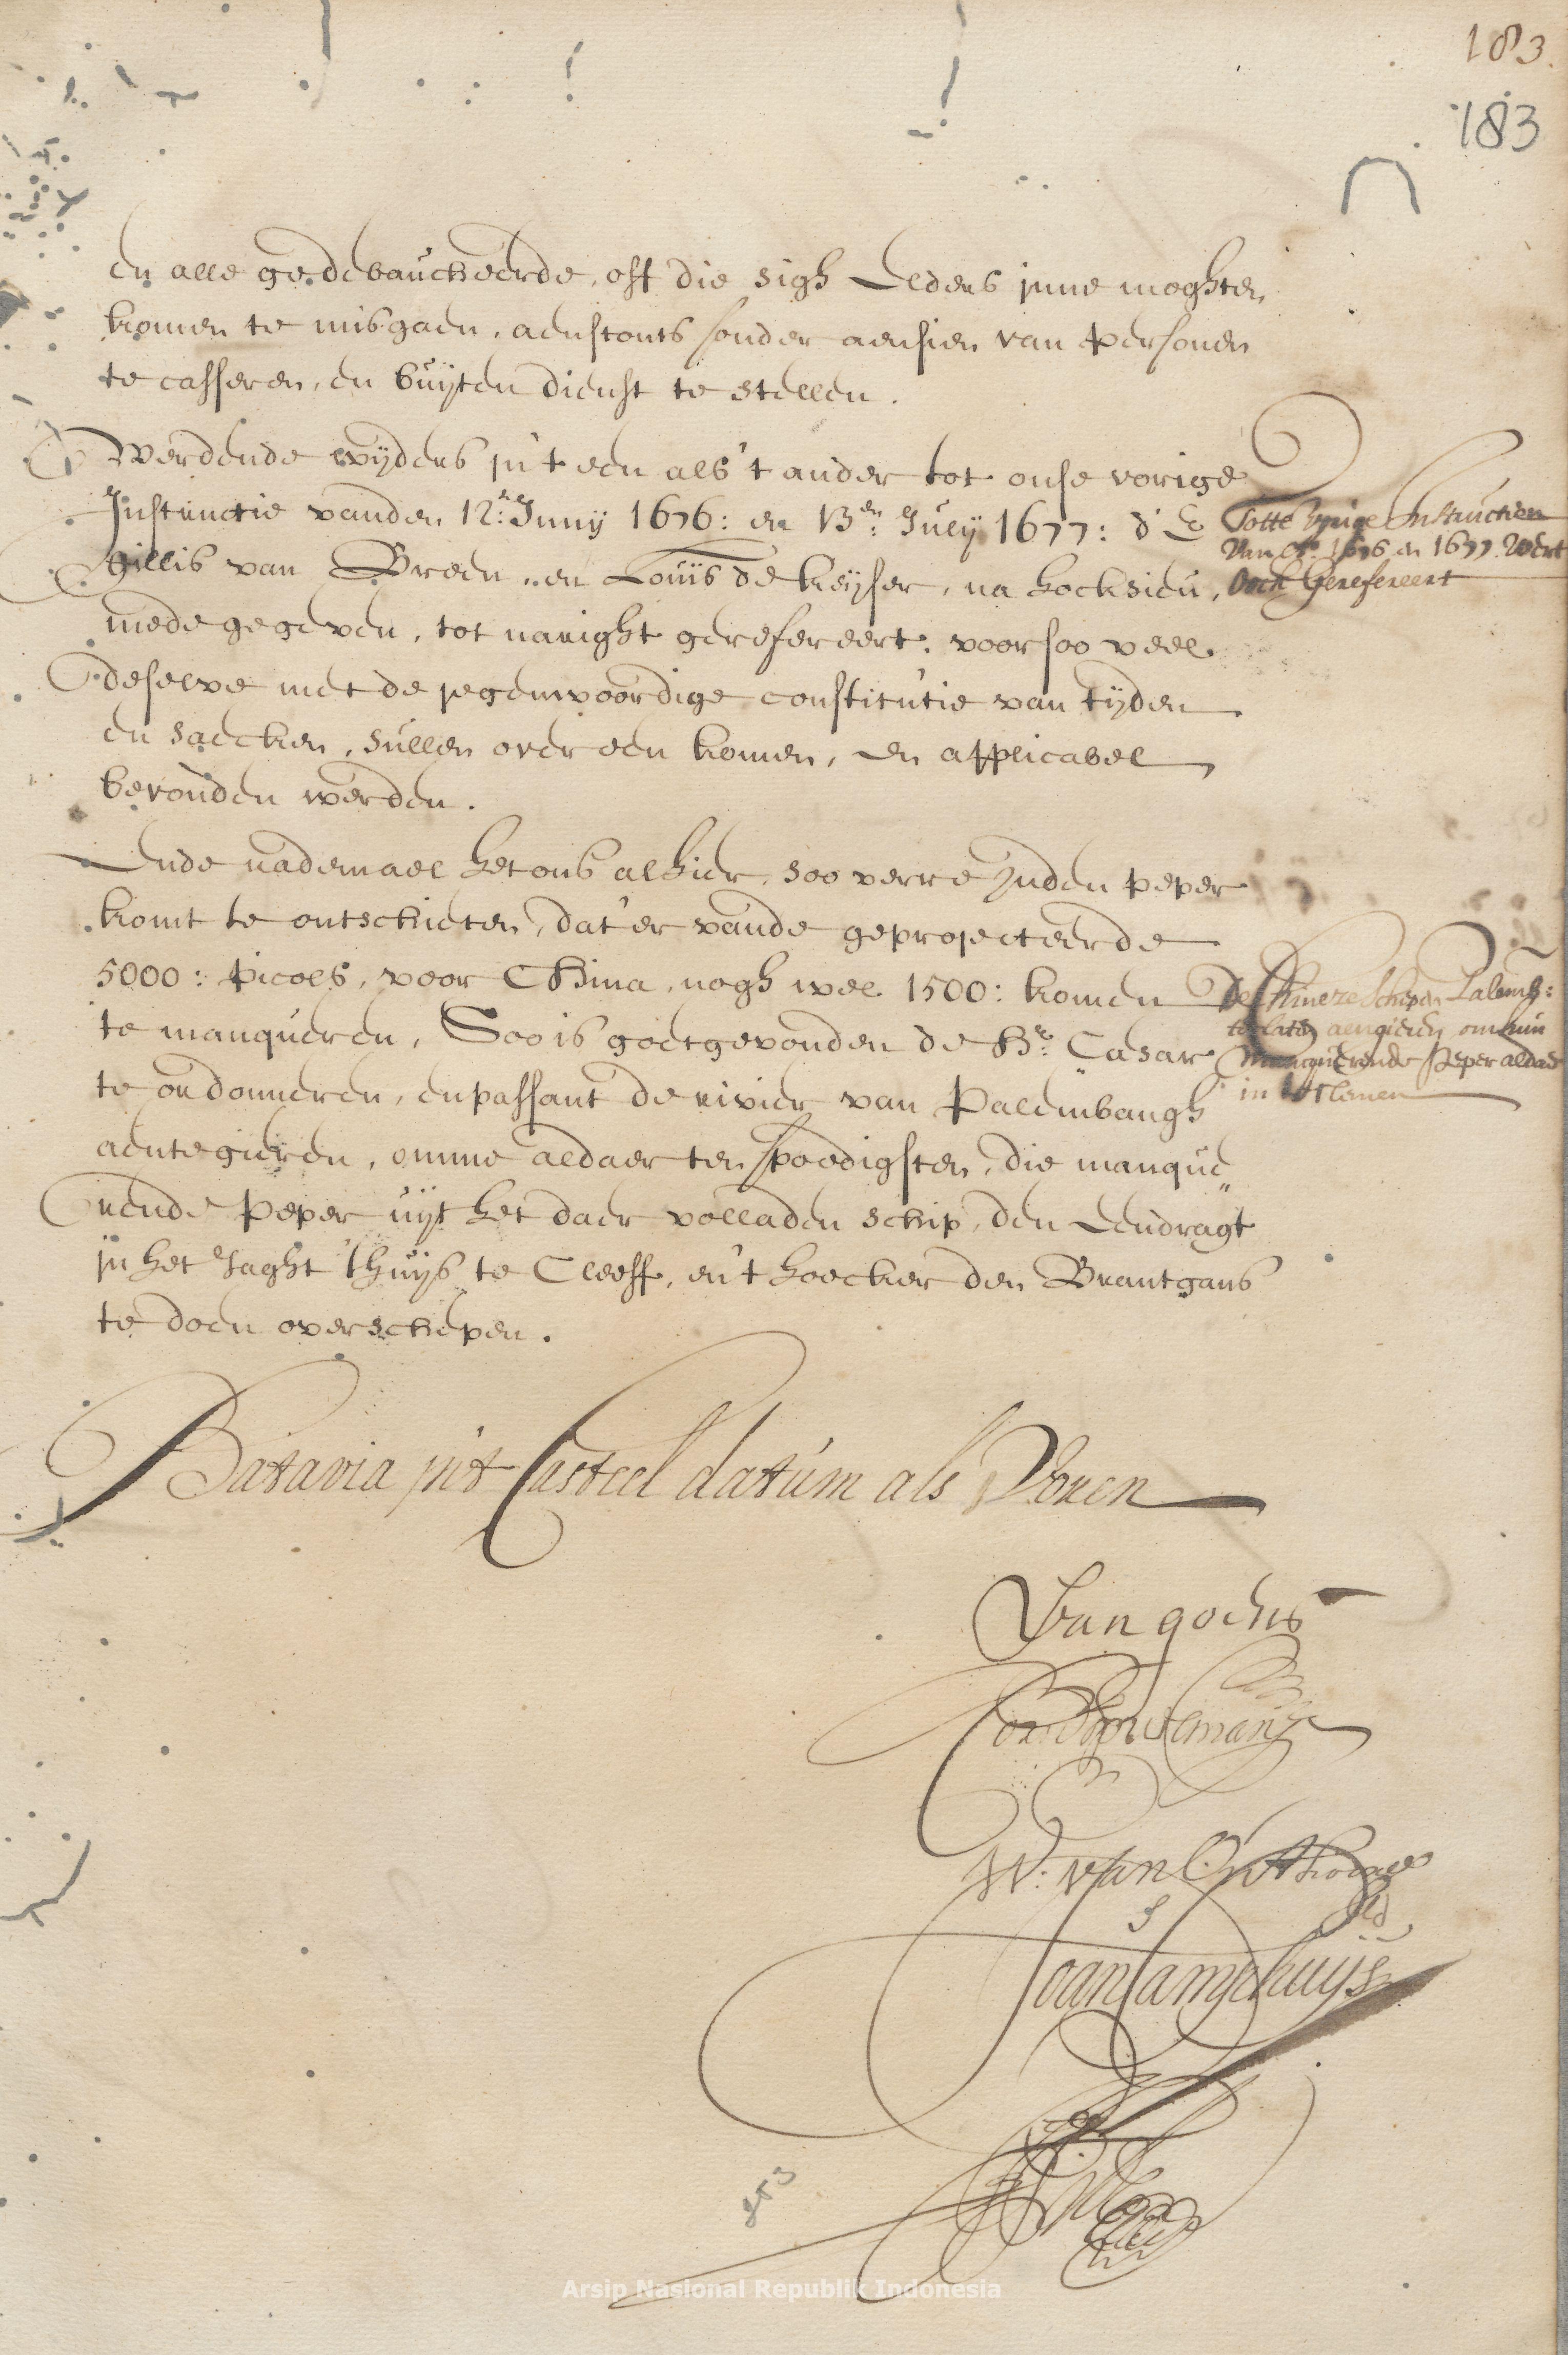 183.
183
en alle gedebaucheerde, oft die sigh elders inne moghten
komen te misgaen, aenstonts sonder aensien van persoonen
te casseren, en buyten dienst te stellen.
Werdende wijders in't een als 't ander tot onse vorige
Instructie vanden 12:e Juny 1676: en 13:en July 1677: d' E
Gillis van Breen, en Louijs de Keijser, na Hocksieu,
mede gegeven, tot naright gerefereert, voor soo veel
deselve met de jegenwoordige constitutie van tijden
en saecken, sullen over een komen, en applicabel
bevonden werden.
Totte vorige Instructien
Van Ao. 1676 en 1677 wert
Oock Gerefereert
Ende nademael het ons alhier, soo verre inden peper
komt te ontschieten, dat'er vande geprojecteerde
5000: picols, voor China, nogh wel 1500: komen
te manqueren, Soo is goetgevonden de Hr: Casar
te ordonneren, enpassant de rivier van Palembangh
aentegieren, omme aldaer ten spoedigsten, die manque„
rende peper uijt het daer volladen schip, den Eendragt
in het Jaght 'thuijs te Cleeff, en 't hoecker den Brantgans
te doen overschepen.
De Chineze Schepen Palemb:
te laten aengieren om hun
Manquerende Peper aldaer
in te nemen
Batavia in't Casteel datum als Voren
Van goens
Cor Speelman
W: van Outhoorn
Joan Camphuijs
253
Arsip Nasional Republik Indonesia